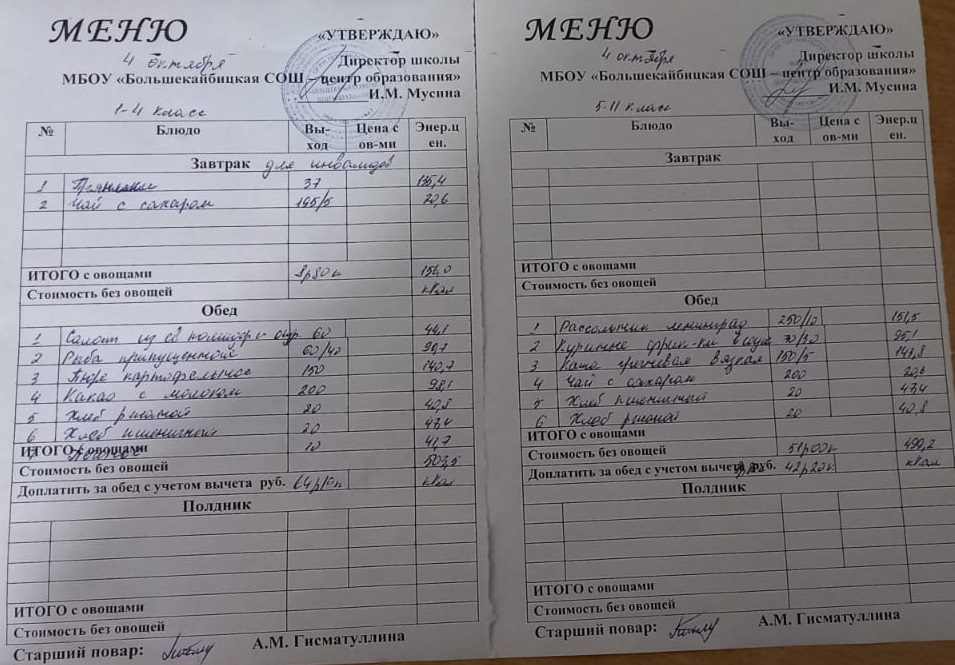 МЕНЮ
«УТВЕРЖДАЮ»
4 октября
Директор школы
МБОУ «Большекайбицкая СОШ – центр образования»
И.М. Мусина
1-4 класс
№ Блюдо Вы-ход Цена с ов-ми Энер.ц ен.
Завтрак для инвалидов
1 37 135,4
2 Чай с сахаром 195/5 20,6
ИТОГО с овощами 156,0
Стоимость без овощей кКал
Обед
1 Салат из св помидор и огур 60 44,1
2 Рыба припущенная 60/40
3 Пюре картофельное 150 140,7
4 Какао с молоком 200 98,1
5 Хлеб ржаной 20 40,8
6 Хлеб пшеничный 20 47,4
ИТОГО с овощами 10 41,7
Стоимость без овощей 507,5
Доплатить за обед с учетом вычета руб. кКал
Полдник
ИТОГО с овощами
Стоимость без овощей
Старший повар: А.М. Гисматуллина
МЕНЮ
«УТВЕРЖДАЮ»
4 октября
Директор школы
МБОУ «Большекайбицкая СОШ – центр образования»
И.М. Мусина
5-11 класс
№ Блюдо Вы-ход Цена с ов-ми Энер.ц ен.
Завтрак
ИТОГО с овощами
Стоимость без овощей
Обед
1 Рассольник ленинград 250/10 151,5
2 Куриные фрик-ки в соусе 70/30 95,1
3 Каша гречневая вязкая 150/5 141,8
4 Чай с сахаром 200 20,6
5 Хлеб пшеничный 20 47,4
6 Хлеб ржаной 20 40,8
ИТОГО с овощами
Стоимость без овощей 51р00к 499,2
Доплатить за обед с учетом вычета руб. 42р20к кКал
Полдник
ИТОГО с овощами
Стоимость без овощей
Старший повар: А.М. Гисматуллина